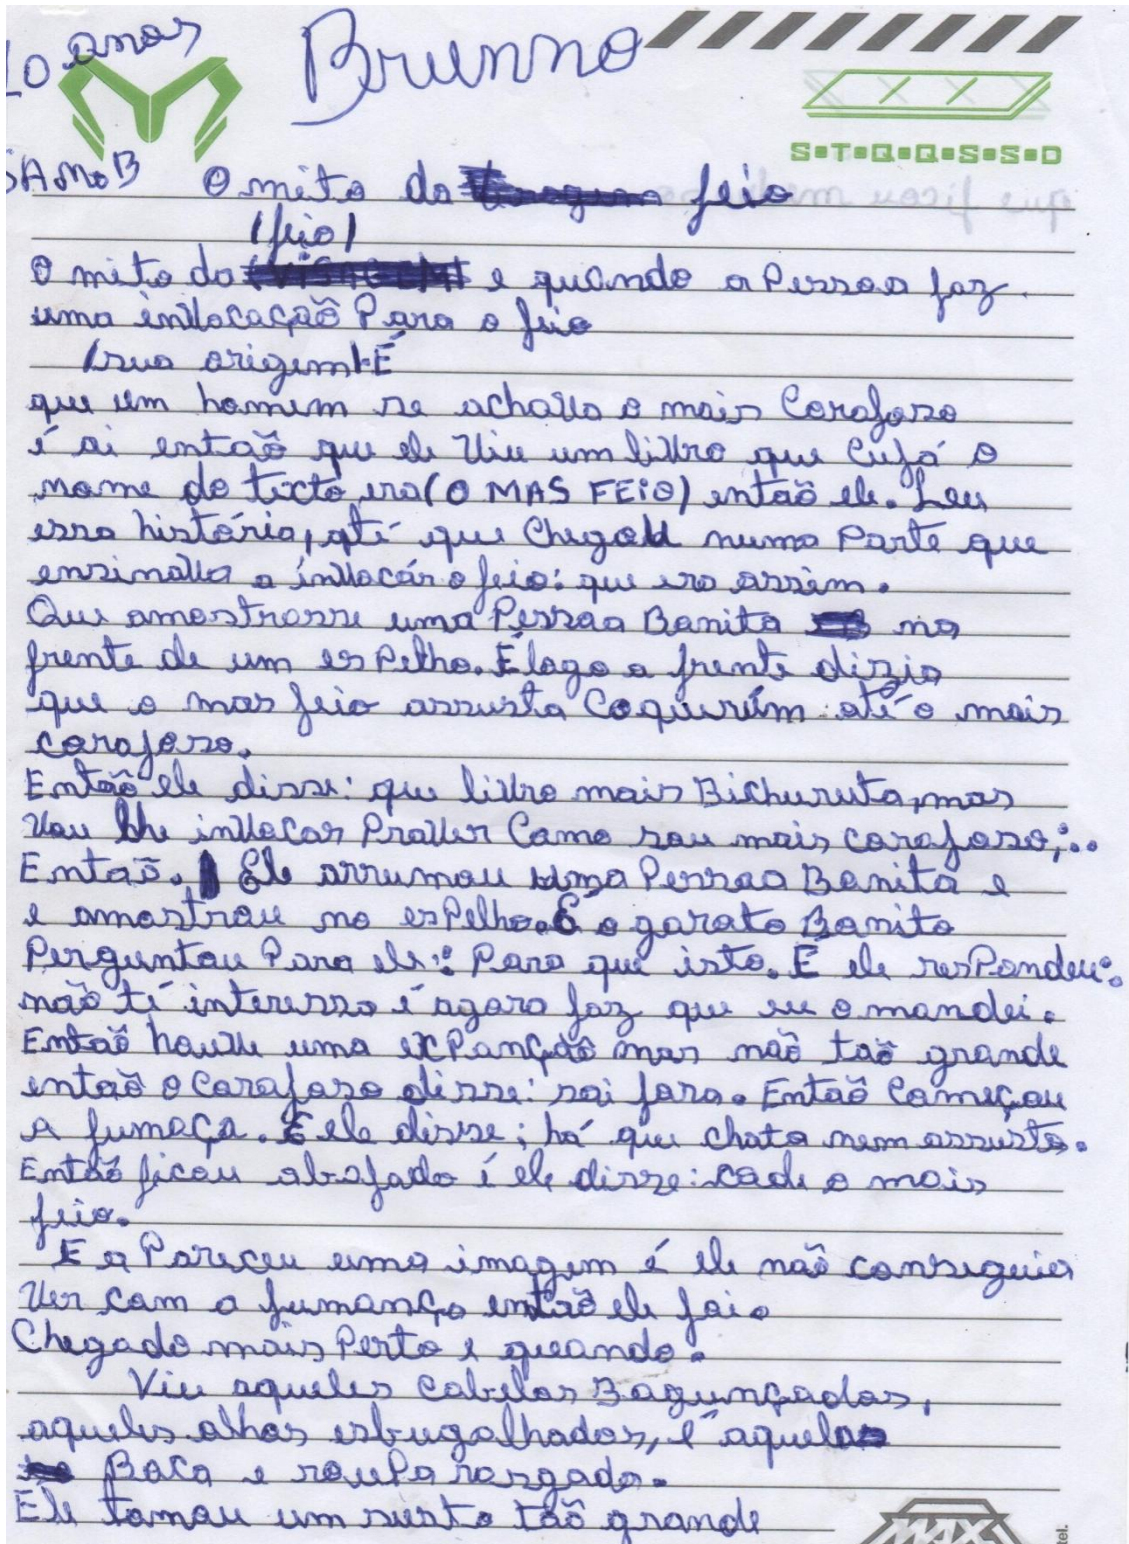 10 anos
Brunno
S•T•Q•Q•S•S•D
O mito do feio
que ficou
(feio)
O mito do e quando a Pessoa faz
uma invocação Para o feio
(sua origem) É
que um homem se achava o mais Corafoso
é ai então que ele Viu um livro que Cujá o
nome do texto era (O MAS FEIO) então ele. Leu
essa história, até que Chegou numa Parte que
ensinava a invocár o feio: que era assim.
Que amostrasse uma Pessoa Bonita na
frente de um esPelho. É logo a frente dizia
que o mas feio assusta Coquerúm até o mais
corafoso.
Então ele disse: que livro mais Bichuruta, mas
Vou lhe invocar Praver Como sou mais corafoso;..
Então. Ele arrumou uma Pessoa Bonita e
e amostrou no esPelho. E o garato Bonito
Perguntou Para ele: Para que isto. E ele resPondeu:
não ti interessa é agora faz que eu o mandei.
Então houve uma exPanção mas não tão grande
então o Corafoso disse: sai fora. Então Começou
A fumaça. E ele disse; há que chato nem assusta.
Então ficou abafado é ele disse: cade o mais
feio.
E a Pareceu uma imagem é ele não conseguia
Ver com a fumança então ele foi.
Chegado mais Perto e quando.
Viu aqueles cabelos Bagunçados,
aqueles olhos esbugalhados, é aquela
Boca e rouPa rasgada.
Ele tomou um susto tão grande
MAX